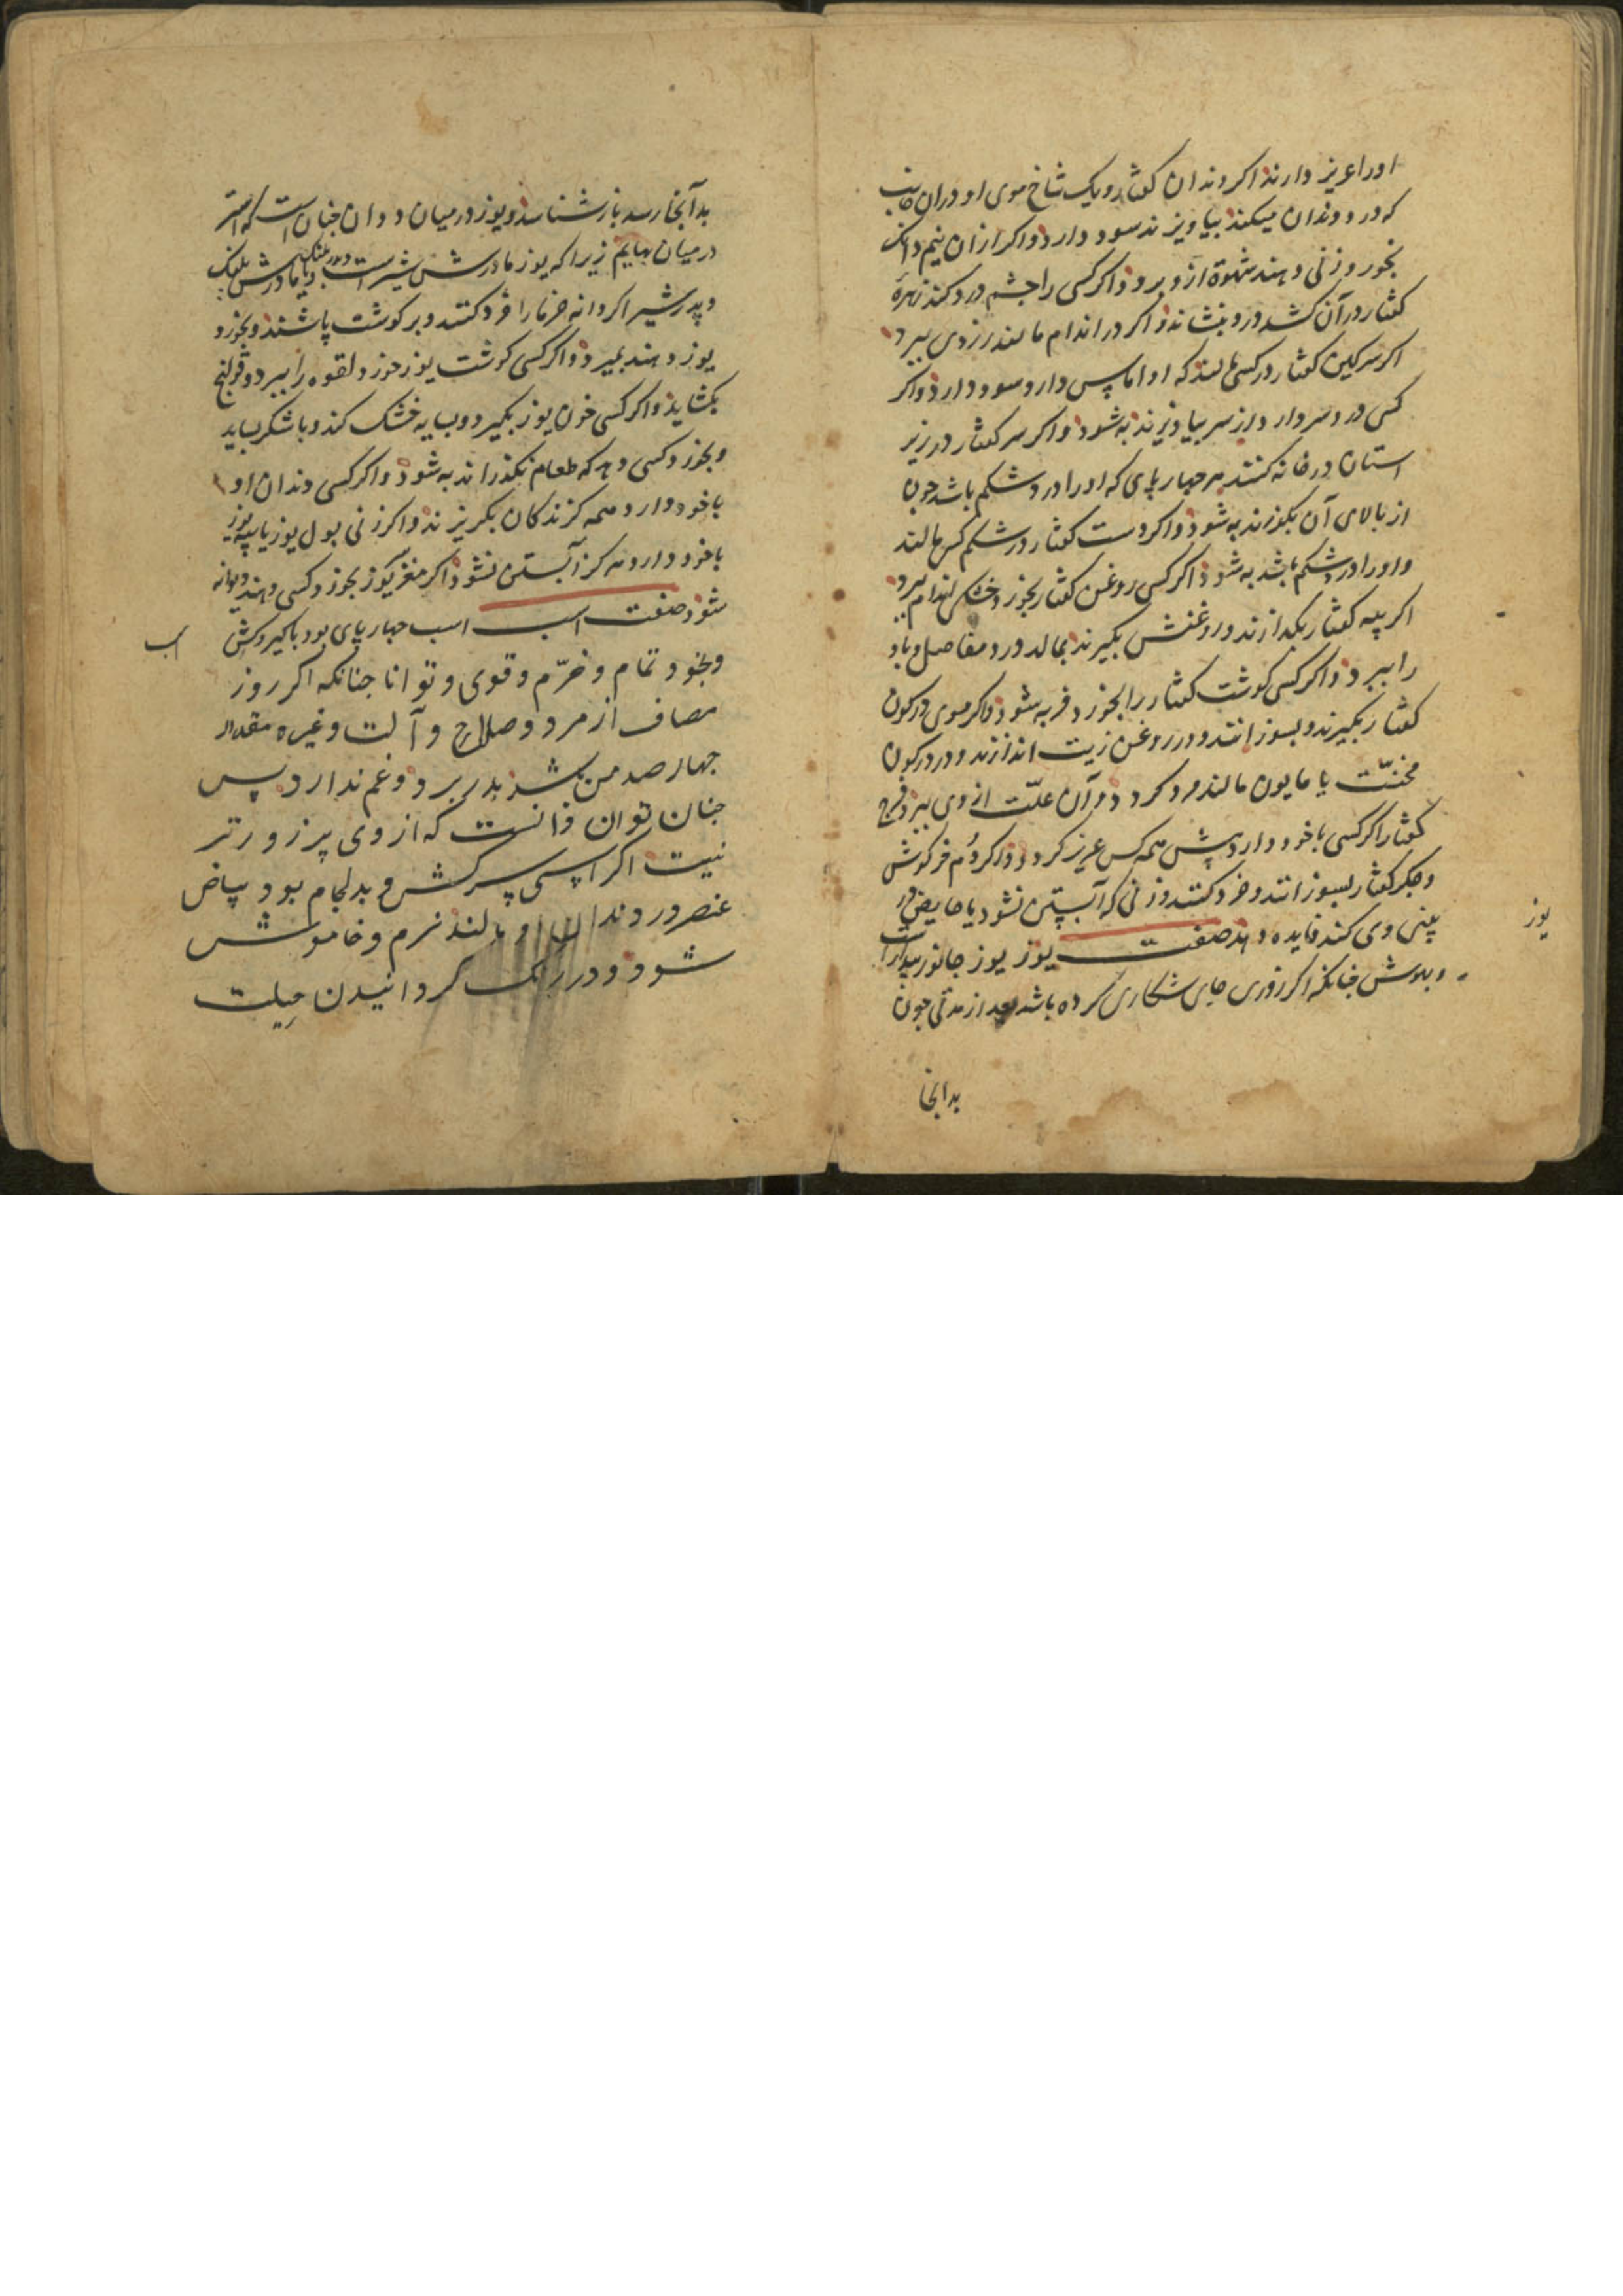 اورا عزیز دارند اکر دندان کفتار و یک شاخ موی او در ان جانب
که درد دندان میکند بیاویزند سود دارد واکر ازان نیم دانک
بخورد زنی دهند شهوة ازو برود واکر کسی را چشم درد کند زهرۀ
کفتار در آن کشد درد بنشاند واکر در اندام مالند زردی ببرد
اکر سرکین کفتار در کسی مالند که او اماس دارد سود دارد واکر
کسی درد سر دارد از سر بیاویزند به شود واکر سر کفتار در زیر
استان در خانه کنند هر چهارپای که او را درد شکم باشد چون
از بالای آن بکذرند به شود واکر دست کفتار در شکم کسی مالند
واورا درد شکم باشد به شود اکر کسی روغن کفتار بخورد اندام ببرد
اکر پیه کفتار بکدازند و روغنش بکیرند بمالد درد مفاصل و باد
را ببرد واکر کسی کوشت کفتار را بخورد فربه شود واکر موی در کون
کفتار بکیرند و بسوزانند و در روغن زیت اندازند و در در کون
مخنّث یا مابون مالند مرد کردد و آن علّت از وی ببرد فرج
کفتار اکر کسی با خود دارد پیش همه کس عزیز کردد واکر دُم خرکوش
و جکر کفتار بسوزانند و خرد کنند و زنی که آبستن نشود یا حایض در
پیش وی کنند فایده دهد صفت یوز یوز جانور بیدار است
و بهوش چنانکه اکر روزی جای شکاری کرده باشد بعد از مدتی چون
بدانجا
یوز
بدآنجا رسد باز شناسد و یوز در میان ددان چنان است که استر
در میان بهایم زیرا که یوز مادرش شیر است و پدر پلنک یا مادرش پلنک
و پدر شیر اکر دانه خرما را خرد کنند و بر کوشت پاشند و بخورد
یوز دهند بمیرد واکر کسی کوشت یوز خورد لقوه را ببرد و قولنج
بکشاید واکر کسی خون یوز بکیرد و بسایه خشک کند و با شکر بساید
و بخورد کسی دهد که طعام نکذراند به شود واکر کسی دندان او
با خود دارد همه کزندکان بکریزند واکر زنی بول یوز یا پیه یوز
با خود دارد هرکز آبستن نشود اکر مغز یوز بخورد کسی دهند دیوانه
شود صفت اسب اسب چهارپای بود پاکیزه کش
و بخود تمام و خرّم و قوی و توانا چنانکه اکر روز
مصاف از مرد و صلاح و آلت و غیره مقدار
چهار صد من بدر برد و غم ندارد پس
چنان توان دانست که از وی پرزورتر
نیست اکر اسپی سرکش و بدلجام بود پیاض
عنصر در دندان او مالند نرم و خاموش
شود و در رنک کردانیدن حیلت
اسب